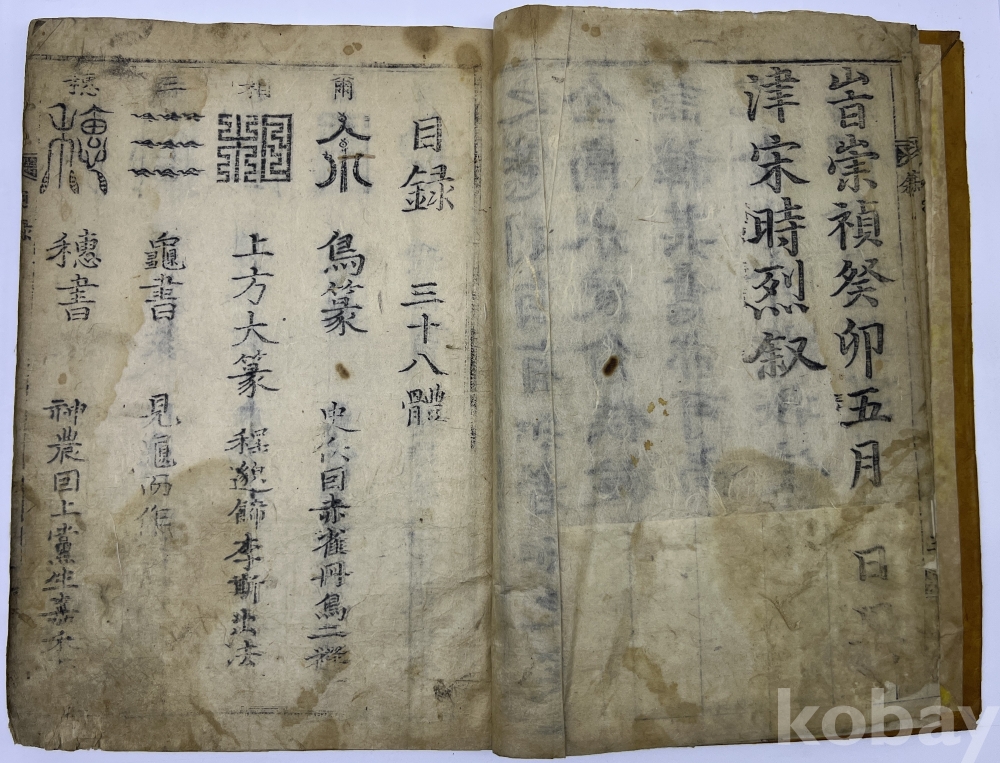 旹崇禎癸卯五月 日
津宋時烈叙
目録 三十八體
爾 鳥篆 史佚曰赤雀丹鳥二祥
相 上方大篆 程邈飾李斯㞢法
三 龜書 見龜而作
穗書 神農因上黨生嘉禾
kobay